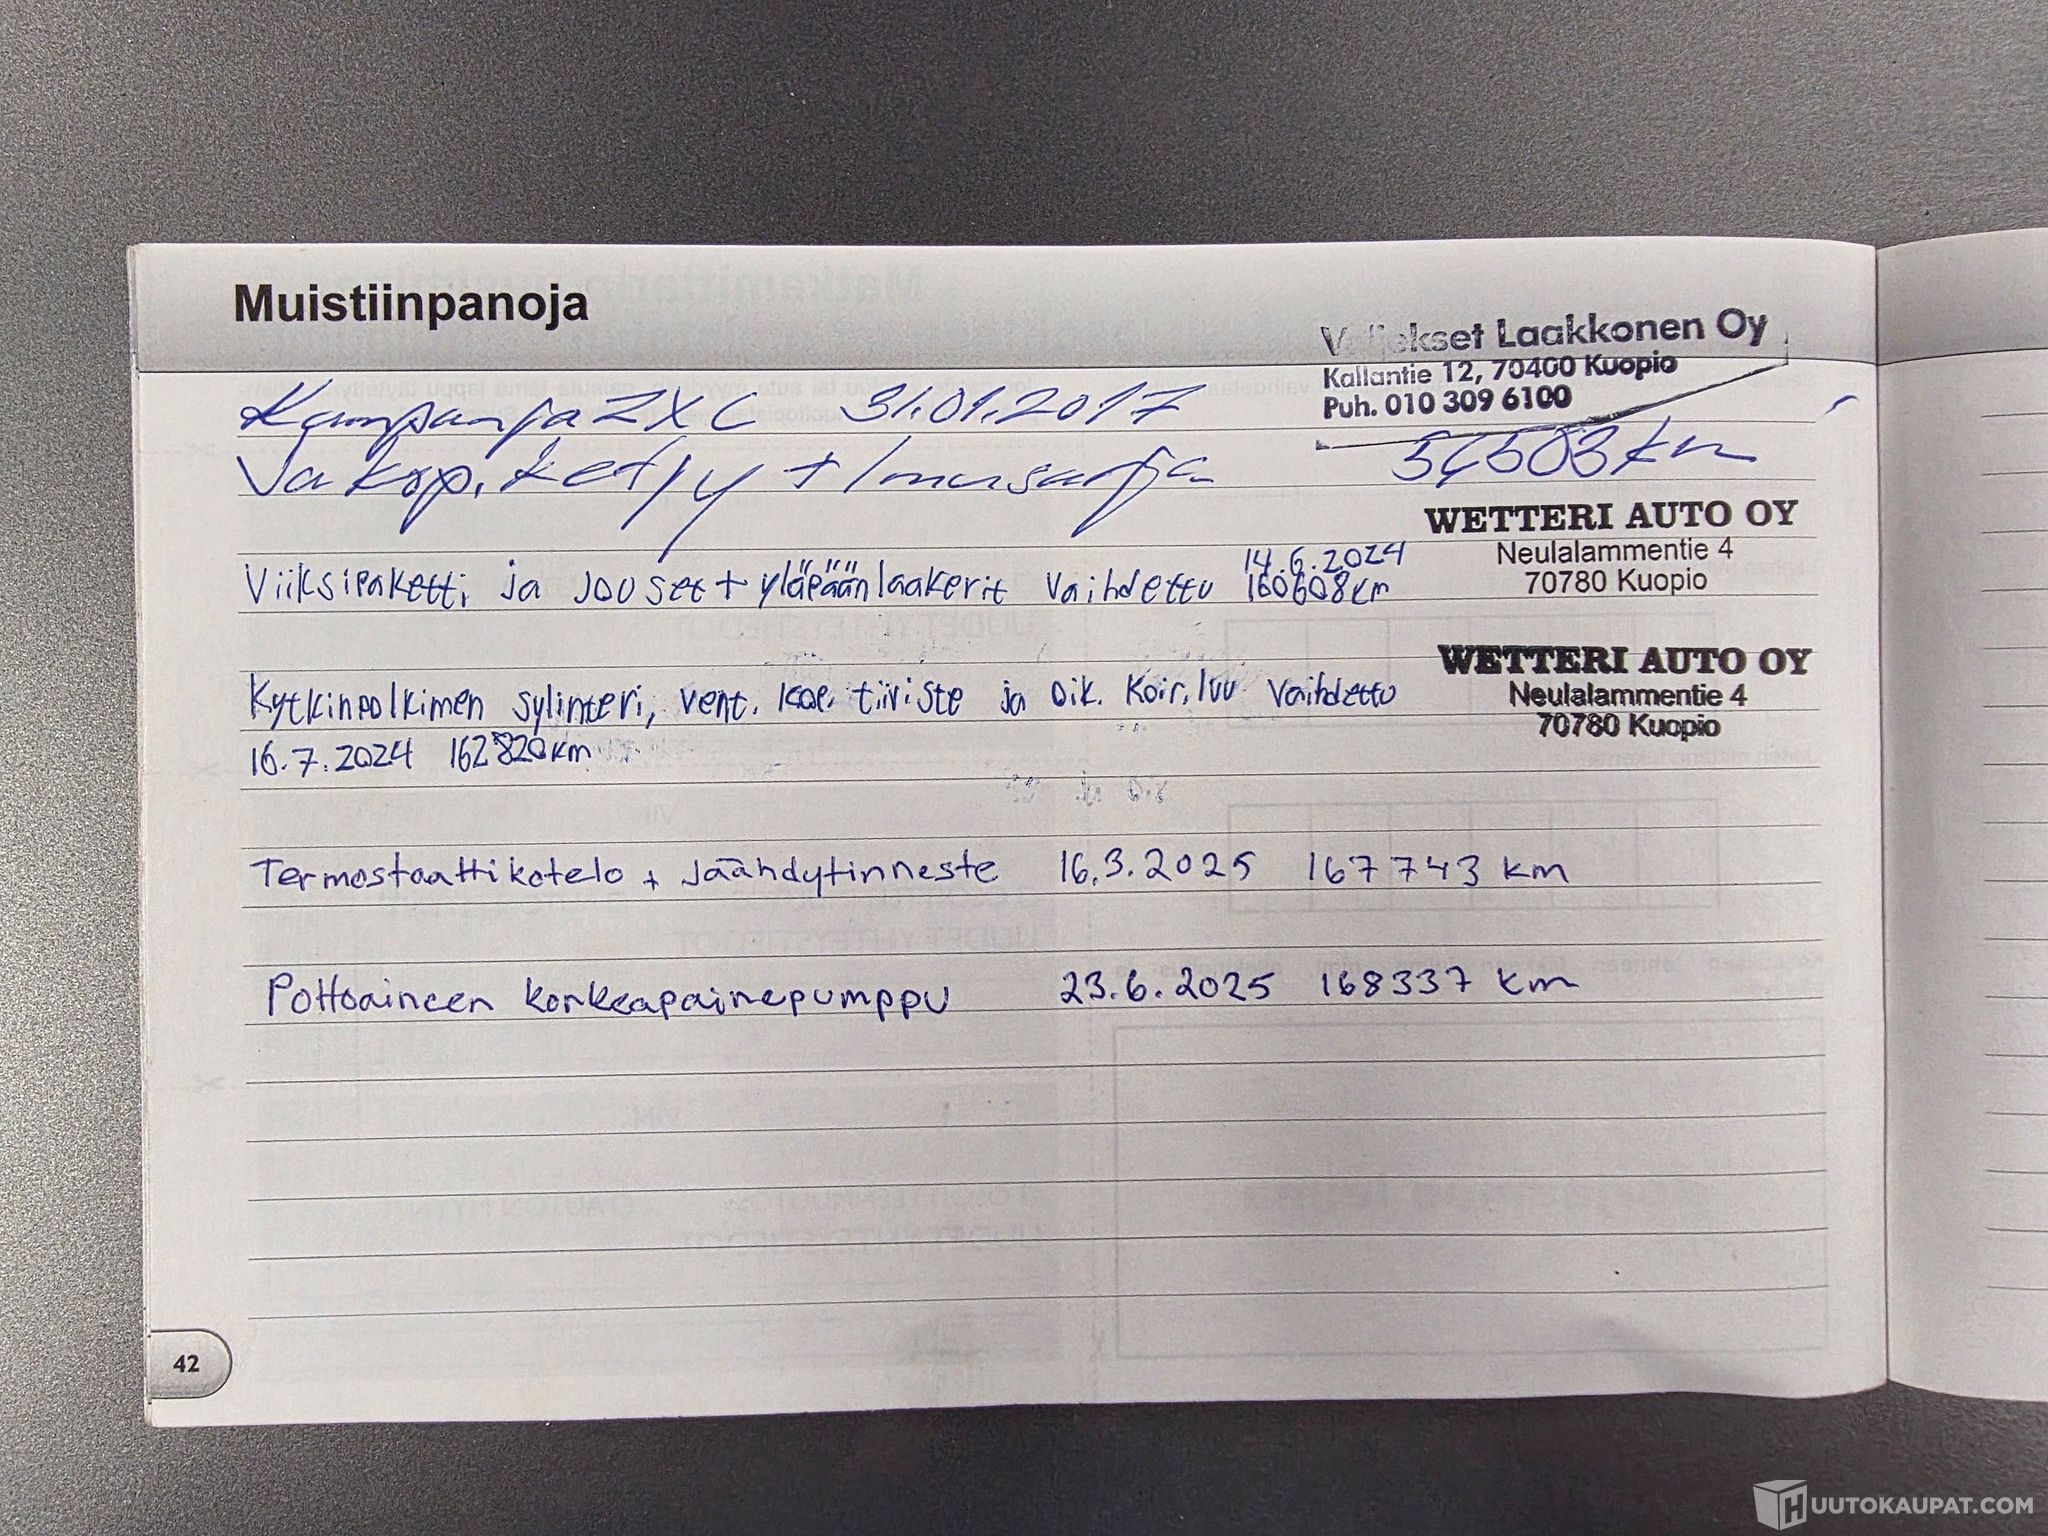 Muistiinpanoja
Veljekset Laakkonen Oy
Kallantie 12, 70400 Kuopio
Puh. 010 309 6100
Kampanja ZXC 31.01.2017
Jakop. ketjy + Imusarja
WETTERI AUTO OY
Neulalammentie 4
70780 Kuopio
14.6.2024
Viiksipaketti ja Jouset + yläpäänlaakerit vaihdettu 160608km
WETTERI AUTO OY
Neulalammentie 4
70780 Kuopio
Kytkinpolkimen sylinteri, vent. kop. tiiviste ja Oik. Koir.luu vaihdettu
16.7.2024 162820km
Termostaattikotelo + Jäähdytinneste 16.3.2025 167743 km
Polttoaineen korkeapainepumppu 23.6.2025 168337 km
42
HUUTOKAUPAT.COM